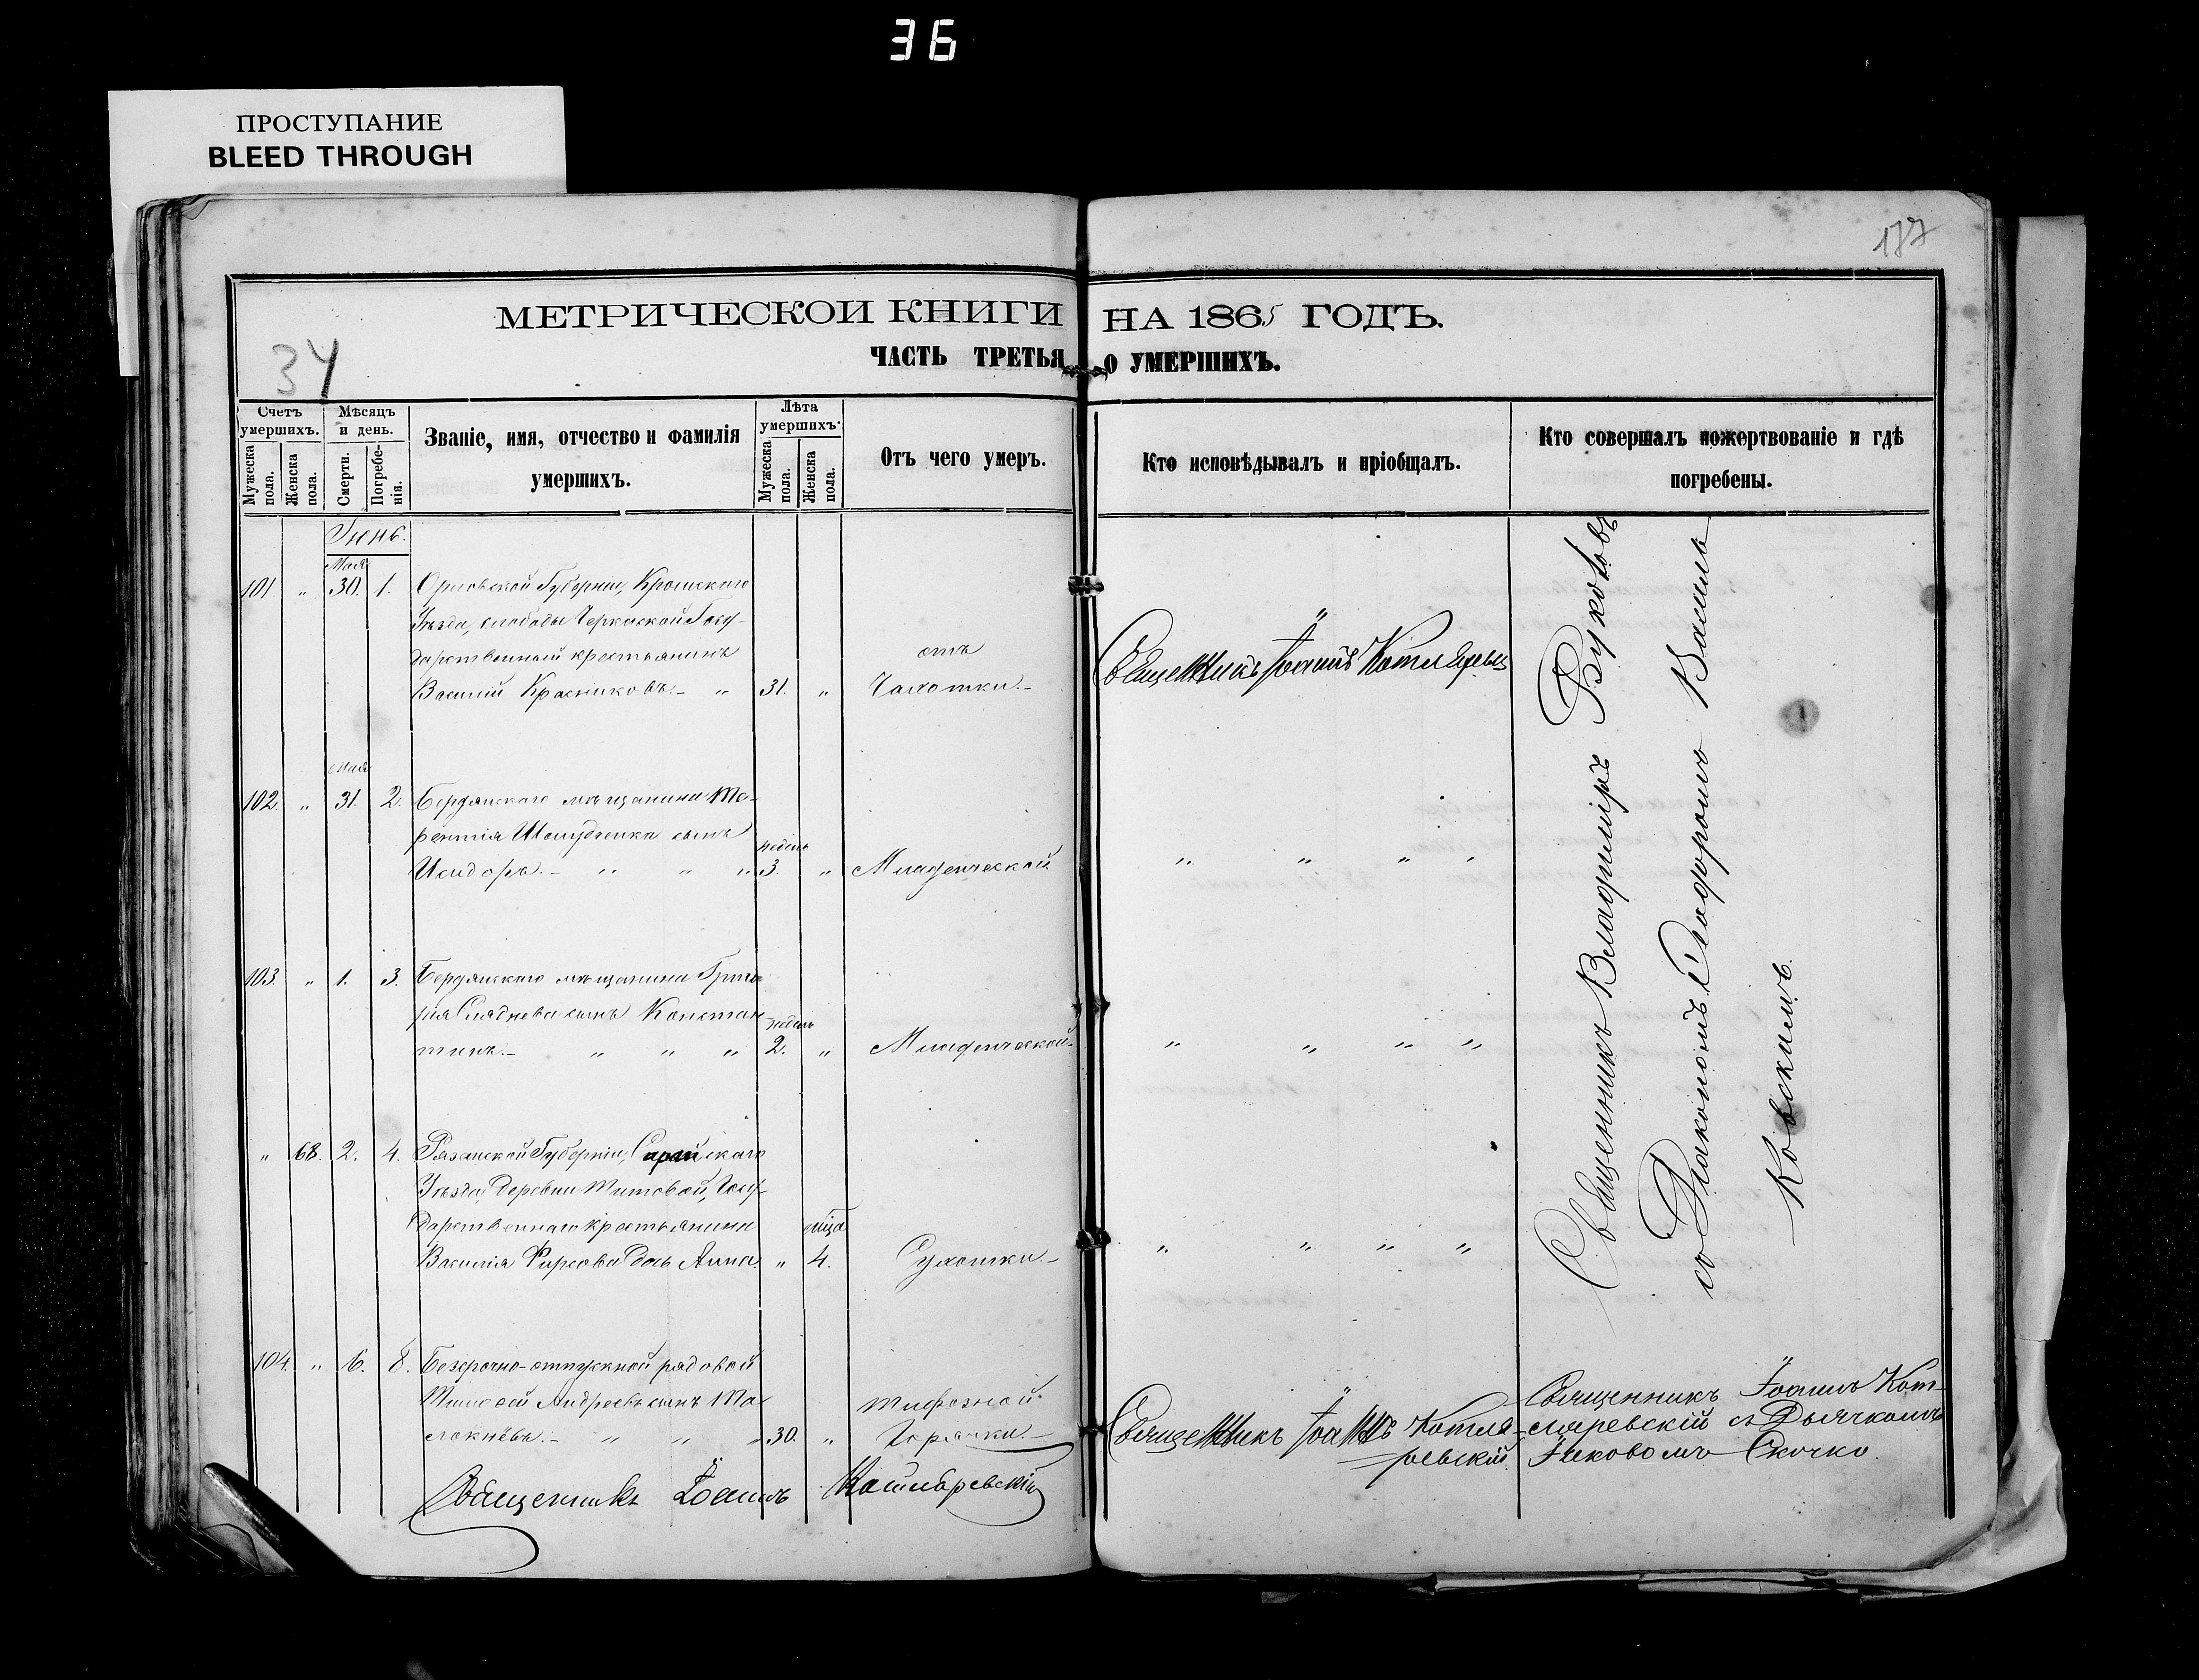 36
ПРОСТУПАНИЕ
BLEED THROUGH
187
34
МЕТРИЧЕСКОЙ КНИГИ НА 1865 ГОДЪ.
ЧАСТЬ ТРЕТЬЯ О УМЕРШИХЪ.
Счетъ умершихъ.
Мужеска пола.
Женска пола.
Мѣсяцъ и день.
Смерти.
Погребенія.
Званіе, имя, отчество и фамилія
умершихъ.
Лѣта умершихъ.
Мужеска пола.
Женска пола.
Отъ чего умеръ.
Кто исповѣдывалъ и пріобщалъ.
Кто совершалъ пожертвованіе и гдѣ
погребены.
Іюнь.
Мая
101. " 30. 1. Орловской Губерніи, Кромскаго
Уѣзда, слободы Черкаской Госу-
дарственный крестьянинъ
Василій Красниковъ.- " 31. "
отъ
Чахотки.-
Священникъ Іоаннъ
Мая
102. " 31. 2. Бердянскаго мѣщанина Те-
рентія сынъ
Исидоръ.- " " " недель 3. " Младенческой
" " " "
103. " 1. 3. Бердянскаго мѣщанина Григо
рія сынъ Констан-
тинъ.- " " " недель 2. " Младенческой-
" " " "
" 68. 2. 4. Рязанской Губерніи, скаго
Уѣзда, Деревни Титовой, Госу-
дарственнаго крестьянина
Василія Фирсова дочь Анна. " мѣсца 4. Сухотки.-
" " " "
104. " 6. 8. Безсрочно-отпускной рядовой
Андреевъ сынъ
" " " 30. "
тифозной
Горячки.-
Священникъ Іоаннъ Котля-
ревскій.
Священникъ Владиміръ Буколовъ
со Діакономъ Никифоромъ Василь
ковскимъ.
Священникъ Іоаннъ Кот-
ляревскій съ Дьячкомъ
Яковомъ Скочко.
Священникъ Іоаннъ Котляревскій